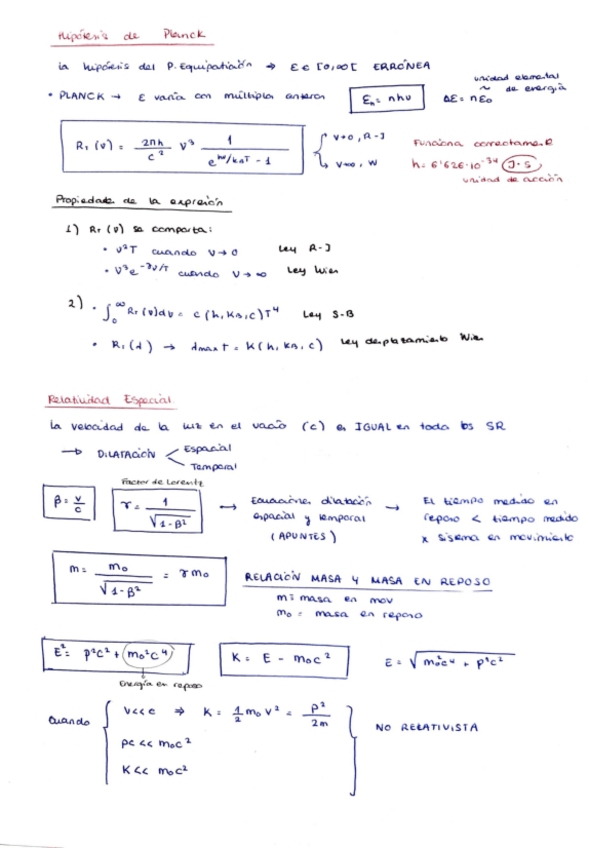 Hipótesis de Planck
la hipótesis del P. Equipartición → ε ∈ [0,∞[ ERRÓNEA
• PLANCK → ε varía con múltiplos enteros εn = nhν ΔE = nε₀
unidad elemental de energía
R_T(ν) = 2πh/c² ν³ 1/(e^(hν/k_BT) - 1) { ν→0, R-J
ν→∞, W
Funciona correctamente
h = 6'626·10⁻³⁴ (J·s)
unidad de acción
Propiedades de la expresión
1) R_T(ν) se comporta:
• ν²T cuando ν→0 Ley R-J
• ν³e^(-ν/T) cuando ν→∞ Ley Wien
2) • ∫₀^∞ R_T(ν)dν = C(h, K_B, c)T⁴ Ley S-B
• R_T(λ) → λmax T = K(h, K_B, c) Ley desplazamiento Wien
Relatividad Especial
La velocidad de la luz en el vacío (c) es IGUAL en todos los SR
→ DILATACIÓN < Espacial
Temporal
Factor de Lorentz
β = v/c γ = 1/√(1-β²) → Ecuaciones dilatación espacial y temporal (APUNTES) → El tiempo medido en reposo < tiempo medido x sistema en movimiento
m = m₀/√(1-β²) = γm₀ RELACIÓN MASA Y MASA EN REPOSO
m = masa en mov
m₀ = masa en reposo
E² = p²c² + m₀²c⁴ K = E - m₀c² E = √(m₀²c⁴ + p²c²)
Energía en reposo
Cuando { v<<c ⇒ K = 1/2 m₀v² = p²/2m
pc << m₀c²
K << m₀c² } NO RELATIVISTA